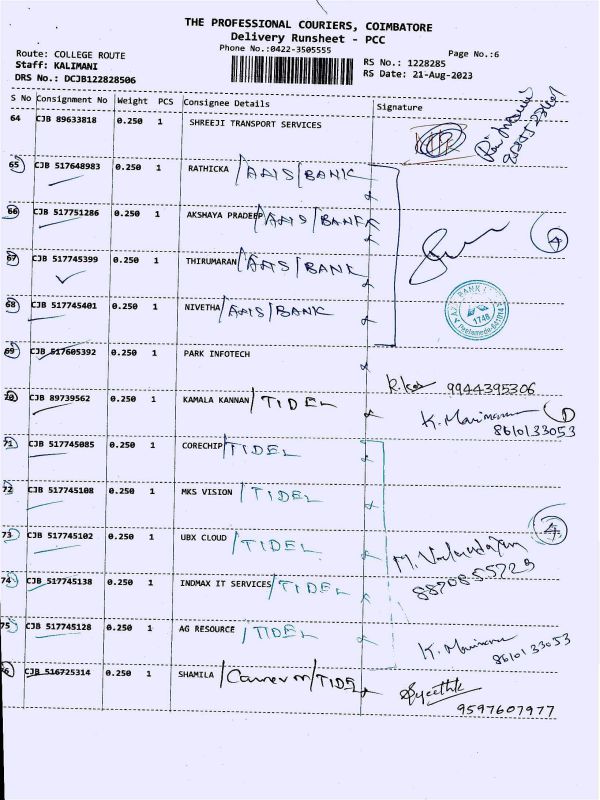 THE PROFESSIONAL COURIERS, COIMBATORE
Delivery Runsheet - PCC
Phone No.:0422-3505555
Page No.:6
Route: COLLEGE ROUTE
Staff: KALIMANI
DRS No.: DCJB122828506
RS No.: 1228285
RS Date: 21-Aug-2023
S No Consignment No Weight PCS Consignee Details Signature
64 CJB 89633818 0.250 1 SHREEJI TRANSPORT SERVICES
65 CJB 517648983 0.250 1 RATHICKA / AXIS / BANK
66 CJB 517751286 0.250 1 AKSHAYA PRADEEP / AXIS / BANK
4
67 CJB 517745399 0.250 1 THIRUMARAN / AXIS / BANK
68 CJB 517745401 0.250 1 NIVETHA / AXIS / BANK
BANK
1748
Peelamedu-641014
69 CJB 517605392 0.250 1 PARK INFOTECH
9944395306
70 CJB 89739562 0.250 1 KAMALA KANNAN / TIDEL
1
8610133053
71 CJB 517745085 0.250 1 CORECHIP / TIDEL
72 CJB 517745108 0.250 1 MKS VISION / TIDEL
4
73 CJB 517745102 0.250 1 UBX CLOUD / TIDEL
8870855729
74 CJB 517745138 0.250 1 INDMAX IT SERVICES / TIDEL
75 CJB 517745128 0.250 1 AG RESOURCE / TIDEL
8610133053
76 CJB 516725314 0.250 1 SHAMILA / TIDEL
9597607977